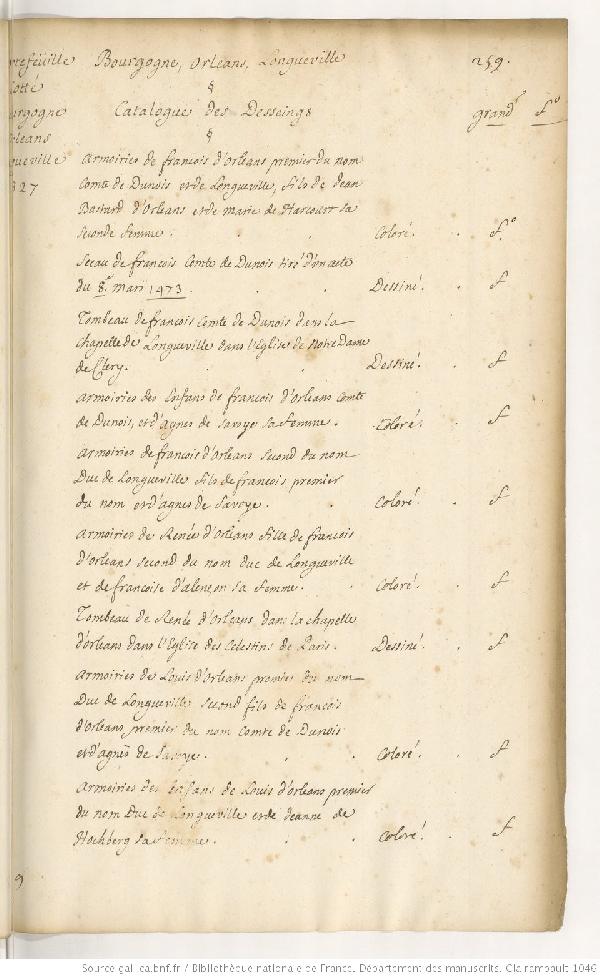 Bourgogne, Orleans, Longueville 259.
Catalogue des Desseings grand f.º
Armoiries de francois d'Orleans premier du nom
Comte de Dunois et de Longueville, fils de Jean
Bastard d'Orleans et de Marie de Harcourt sa
seconde femme. Coloré. f.º
Sceau de francois Comte de Dunois tiré d'un acte
du 8. mars 1473. Dessiné. f
Tombeau de francois Comte de Dunois dans la
Chapelle de Longueville dans l'Eglise de Notre Dame
de Clery. Dessiné. f
Armoiries des Enfans de francois d'Orleans Comte
de Dunois, et d'agnes de Savoye sa femme. Coloré. f
Armoiries de francois d'Orleans second du nom
Duc de Longueville fils de francois premier
du nom et d'agnes de Savoye. Coloré. f
Armoiries de Renée d'Orleans fille de francois
d'Orleans second du nom Duc de Longueville
et de francoise d'alençon sa femme. Coloré. f
Tombeau de Renée d'Orleans, dans la chapelle
d'Orleans dans l'Eglise des Celestins de Paris. Dessiné. f
Armoiries de Louis d'Orleans premier du nom
Duc de Longueville second fils de francois
d'Orleans premier du nom Comte de Dunois
et d'agnes de Savoye. Coloré. f
Armoiries des Enfans de Louis d'Orleans premier
du nom Duc de Longueville et de Jeanne de
Hochberg sa femme. Coloré. f
rtefeüille
Cotté
urgogne
rleans
gueville
27
9
Source gallica.bnf.fr / Bibliothèque nationale de France. Département des manuscrits. Clairambault 1046